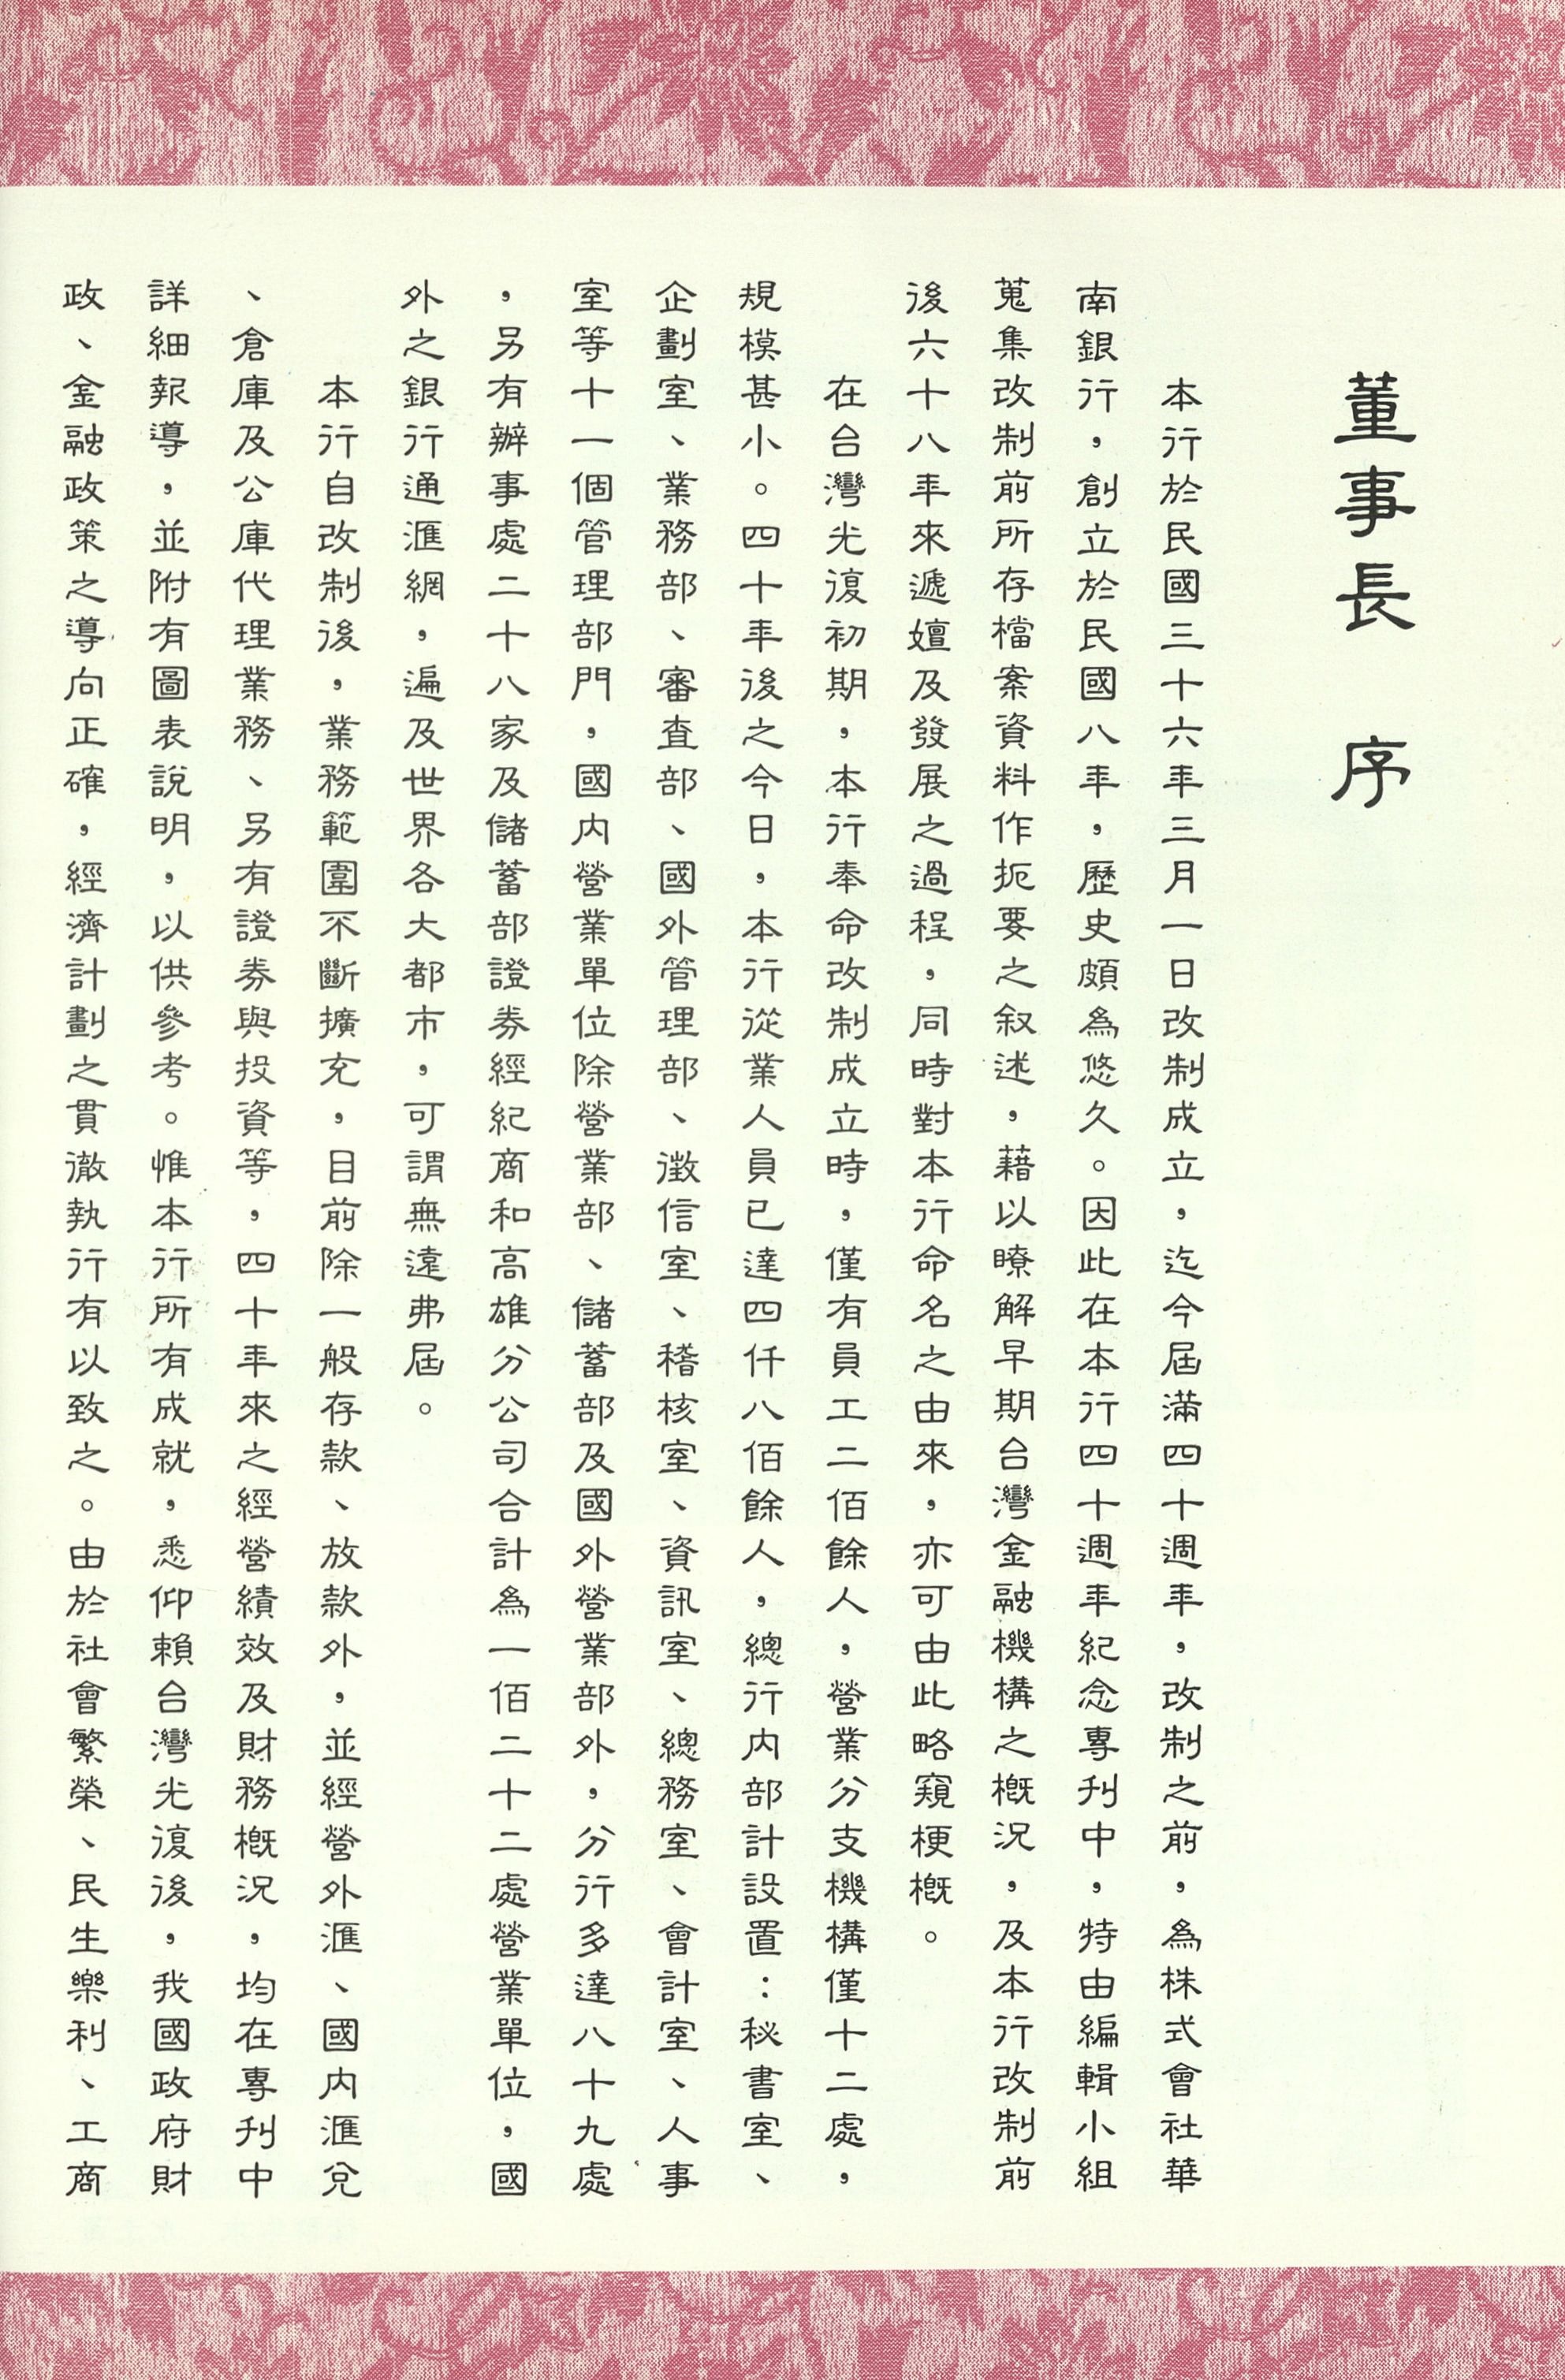 董事長　序
本行於民國三十六年三月一日改制成立，迄今屆滿四十週年，改制之前，為株式會社華
南銀行，創立於民國八年，歷史頗為悠久。因此在本行四十週年紀念專刊中，特由編輯小組
蒐集改制前所存檔案資料作扼要之叙述，藉以瞭解早期台灣金融機構之概況，及本行改制前
後六十八年來遞嬗及發展之過程，同時對本行命名之由來，亦可由此略窺梗概。
在台灣光復初期，本行奉命改制成立時，僅有員工二佰餘人，營業分支機構僅十二處，
規模甚小。四十年後之今日，本行從業人員已達四仟八佰餘人，總行內部計設置：秘書室、
企劃室、業務部、審查部、國外管理部、徵信室、稽核室、資訊室、總務室、會計室、人事
室等十一個管理部門，國內營業單位除營業部、儲蓄部及國外營業部外，分行多達八十九處
，另有辦事處二十八家及儲蓄部證券經紀商和高雄分公司合計為一佰二十二處營業單位，國
外之銀行通滙網，遍及世界各大都市，可謂無遠弗屆。
本行自改制後，業務範圍不斷擴充，目前除一般存款、放款外，並經營外滙、國內滙兌
、倉庫及公庫代理業務、另有證券與投資等，四十年來之經營績效及財務概況，均在專刊中
詳細報導，並附有圖表說明，以供參考。惟本行所有成就，悉仰賴台灣光復後，我國政府財
政、金融政策之導向正確，經濟計劃之貫澈執行有以致之。由於社會繁榮、民生樂利、工商